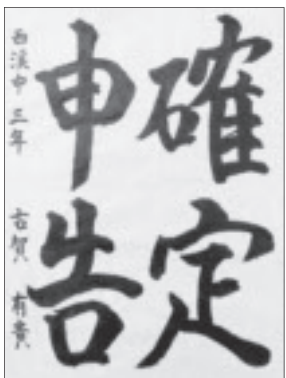 確定
申告
西溪中 三年 古賀 有貴